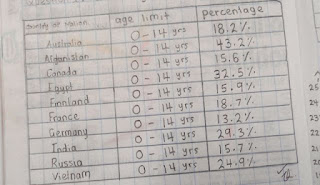 age limit percentage
Australia 0-14 yrs 18.2%
Afganistan 0-14 yrs 43.2%
Canada 0-14 yrs 15.6%
Egypt 0-14 yrs 32.5%
Finnland 0-14 yrs 15.9%
France 0-14 yrs 18.7%
Germany 0-14 yrs 13.2%
India 0-14 yrs 29.3%
Russia 0-14 yrs 15.7%
Vietnam 0-14 yrs 24.9%
25
24
23
22
21